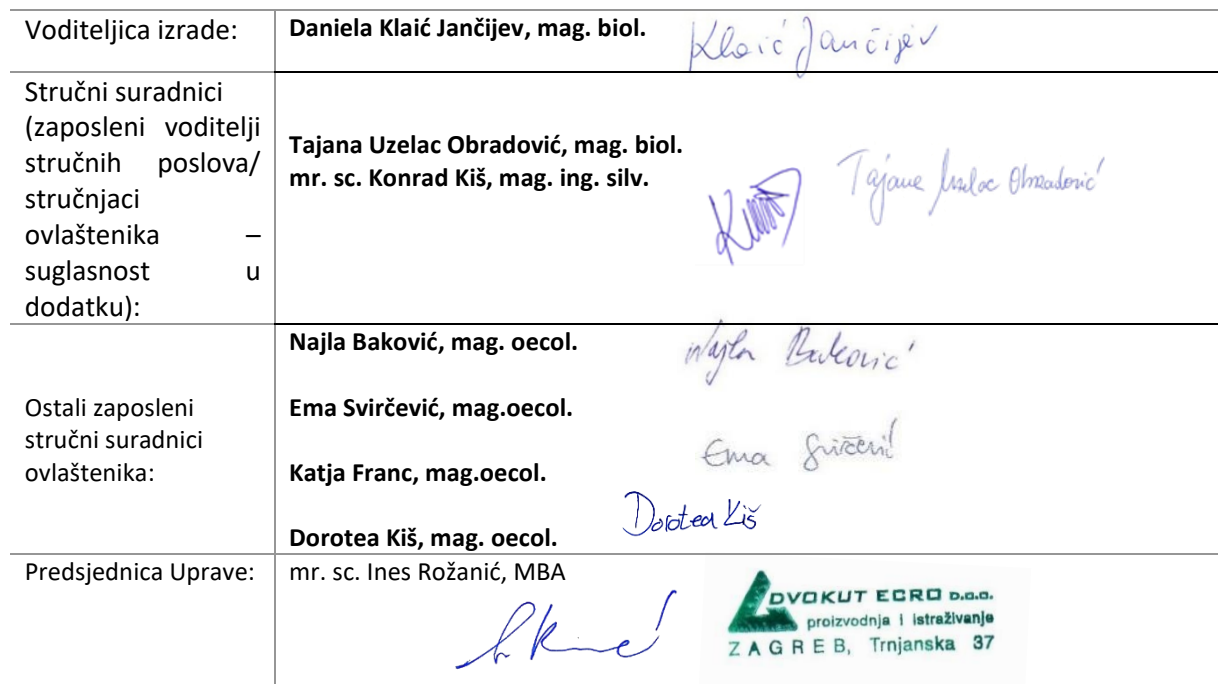 Voditeljica izrade:
Daniela Klaić Jančijev, mag. biol.
Klaić Jančijev
Stručni suradnici
(zaposleni voditelji
stručnih poslova/
stručnjaci
ovlaštenika –
suglasnost u
dodatku):
Tajana Uzelac Obradović, mag. biol.
mr. sc. Konrad Kiš, mag. ing. silv.
Tajana Uzelac Obradović
Ostali zaposleni
stručni suradnici
ovlaštenika:
Najla Baković, mag. oecol.
Najla Baković
Ema Svirčević, mag.oecol.
Ema Svirčević
Katja Franc, mag.oecol.
Dorotea Kiš
Dorotea Kiš, mag. oecol.
Predsjednica Uprave:
mr. sc. Ines Rožanić, MBA
DVOKUT ECRO D.O.O.
proizvodnja i istraživanje
ZAGREB, Trnjanska 37